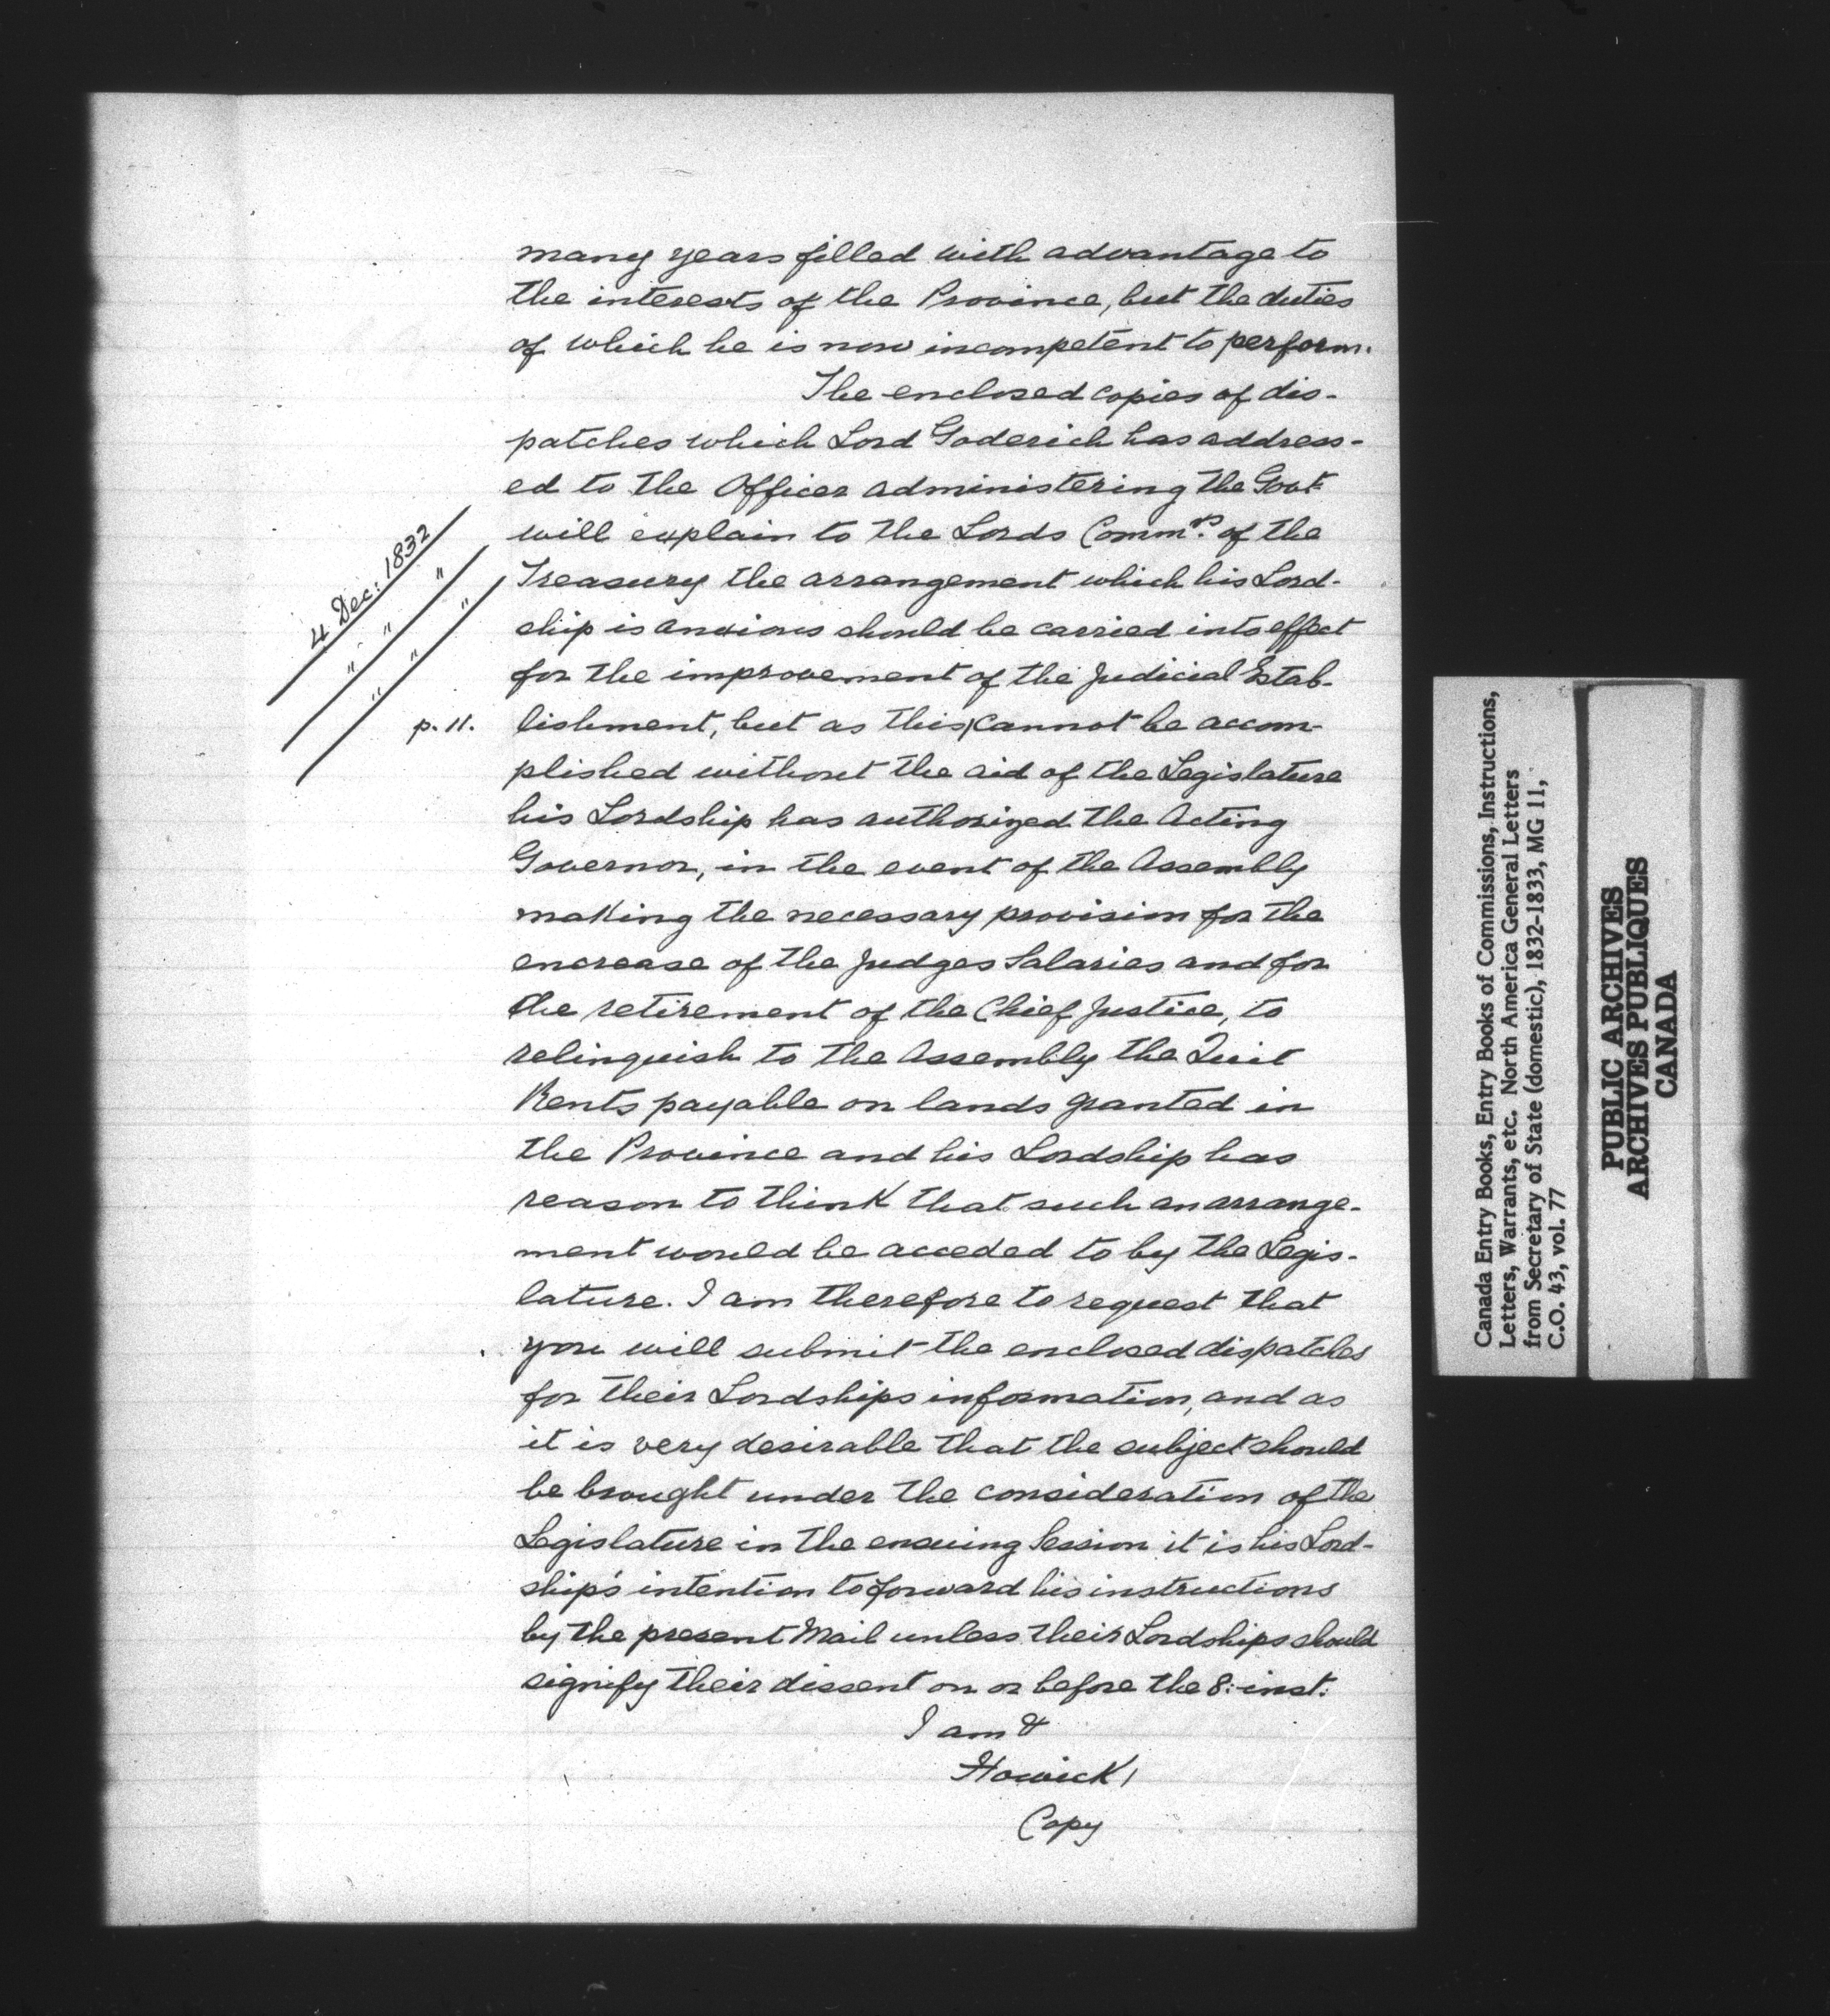 many years filled with advantage to
the interests of the Province, but the duties
of which he is now incompetent to perform.
The enclosed copies of dis-
patches which Lord Goderich has address-
ed to the Officer administering the Govt
will explain to the Lords Commrs. of the
Treasury the arrangement which his Lord-
ship is anxious should be carried into effect
for the improvement of the Judicial Estab-
lishment, but as this cannot be accom-
plished without the aid of the Legislature
his Lordship has authorized the Acting
Governor, in the event of the Assembly
making the necessary provision for the
encrease of the Judges Salaries and for
the retirement of the Chief Justice, to
relinquish to the Assembly the Quit
Rents payable on lands granted in
the Province and his Lordship has
reason to think that such an arrange-
ment would be acceded to by the Legis-
lature. I am therefore to request that
you will submit the enclosed dispatches
for their Lordships information, and as
it is very desirable that the subject should
be brought under the consideration of the
Legislature in the ensuing Session it is his Lord-
ship's intention to forward his instructions
by the present Mail unless their Lordships should
signify their dissent on or before the 8: inst:
I am &
Howick/
Copy
4 Dec: 1832
" " "
" " "
p. 11.
Canada Entry Books, Entry Books of Commissions, Instructions,
Letters, Warrants, etc. North America General Letters
from Secretary of State (domestic), 1832-1833, MG 11,
C.O. 43, vol. 77
PUBLIC ARCHIVES
ARCHIVES PUBLIQUES
CANADA